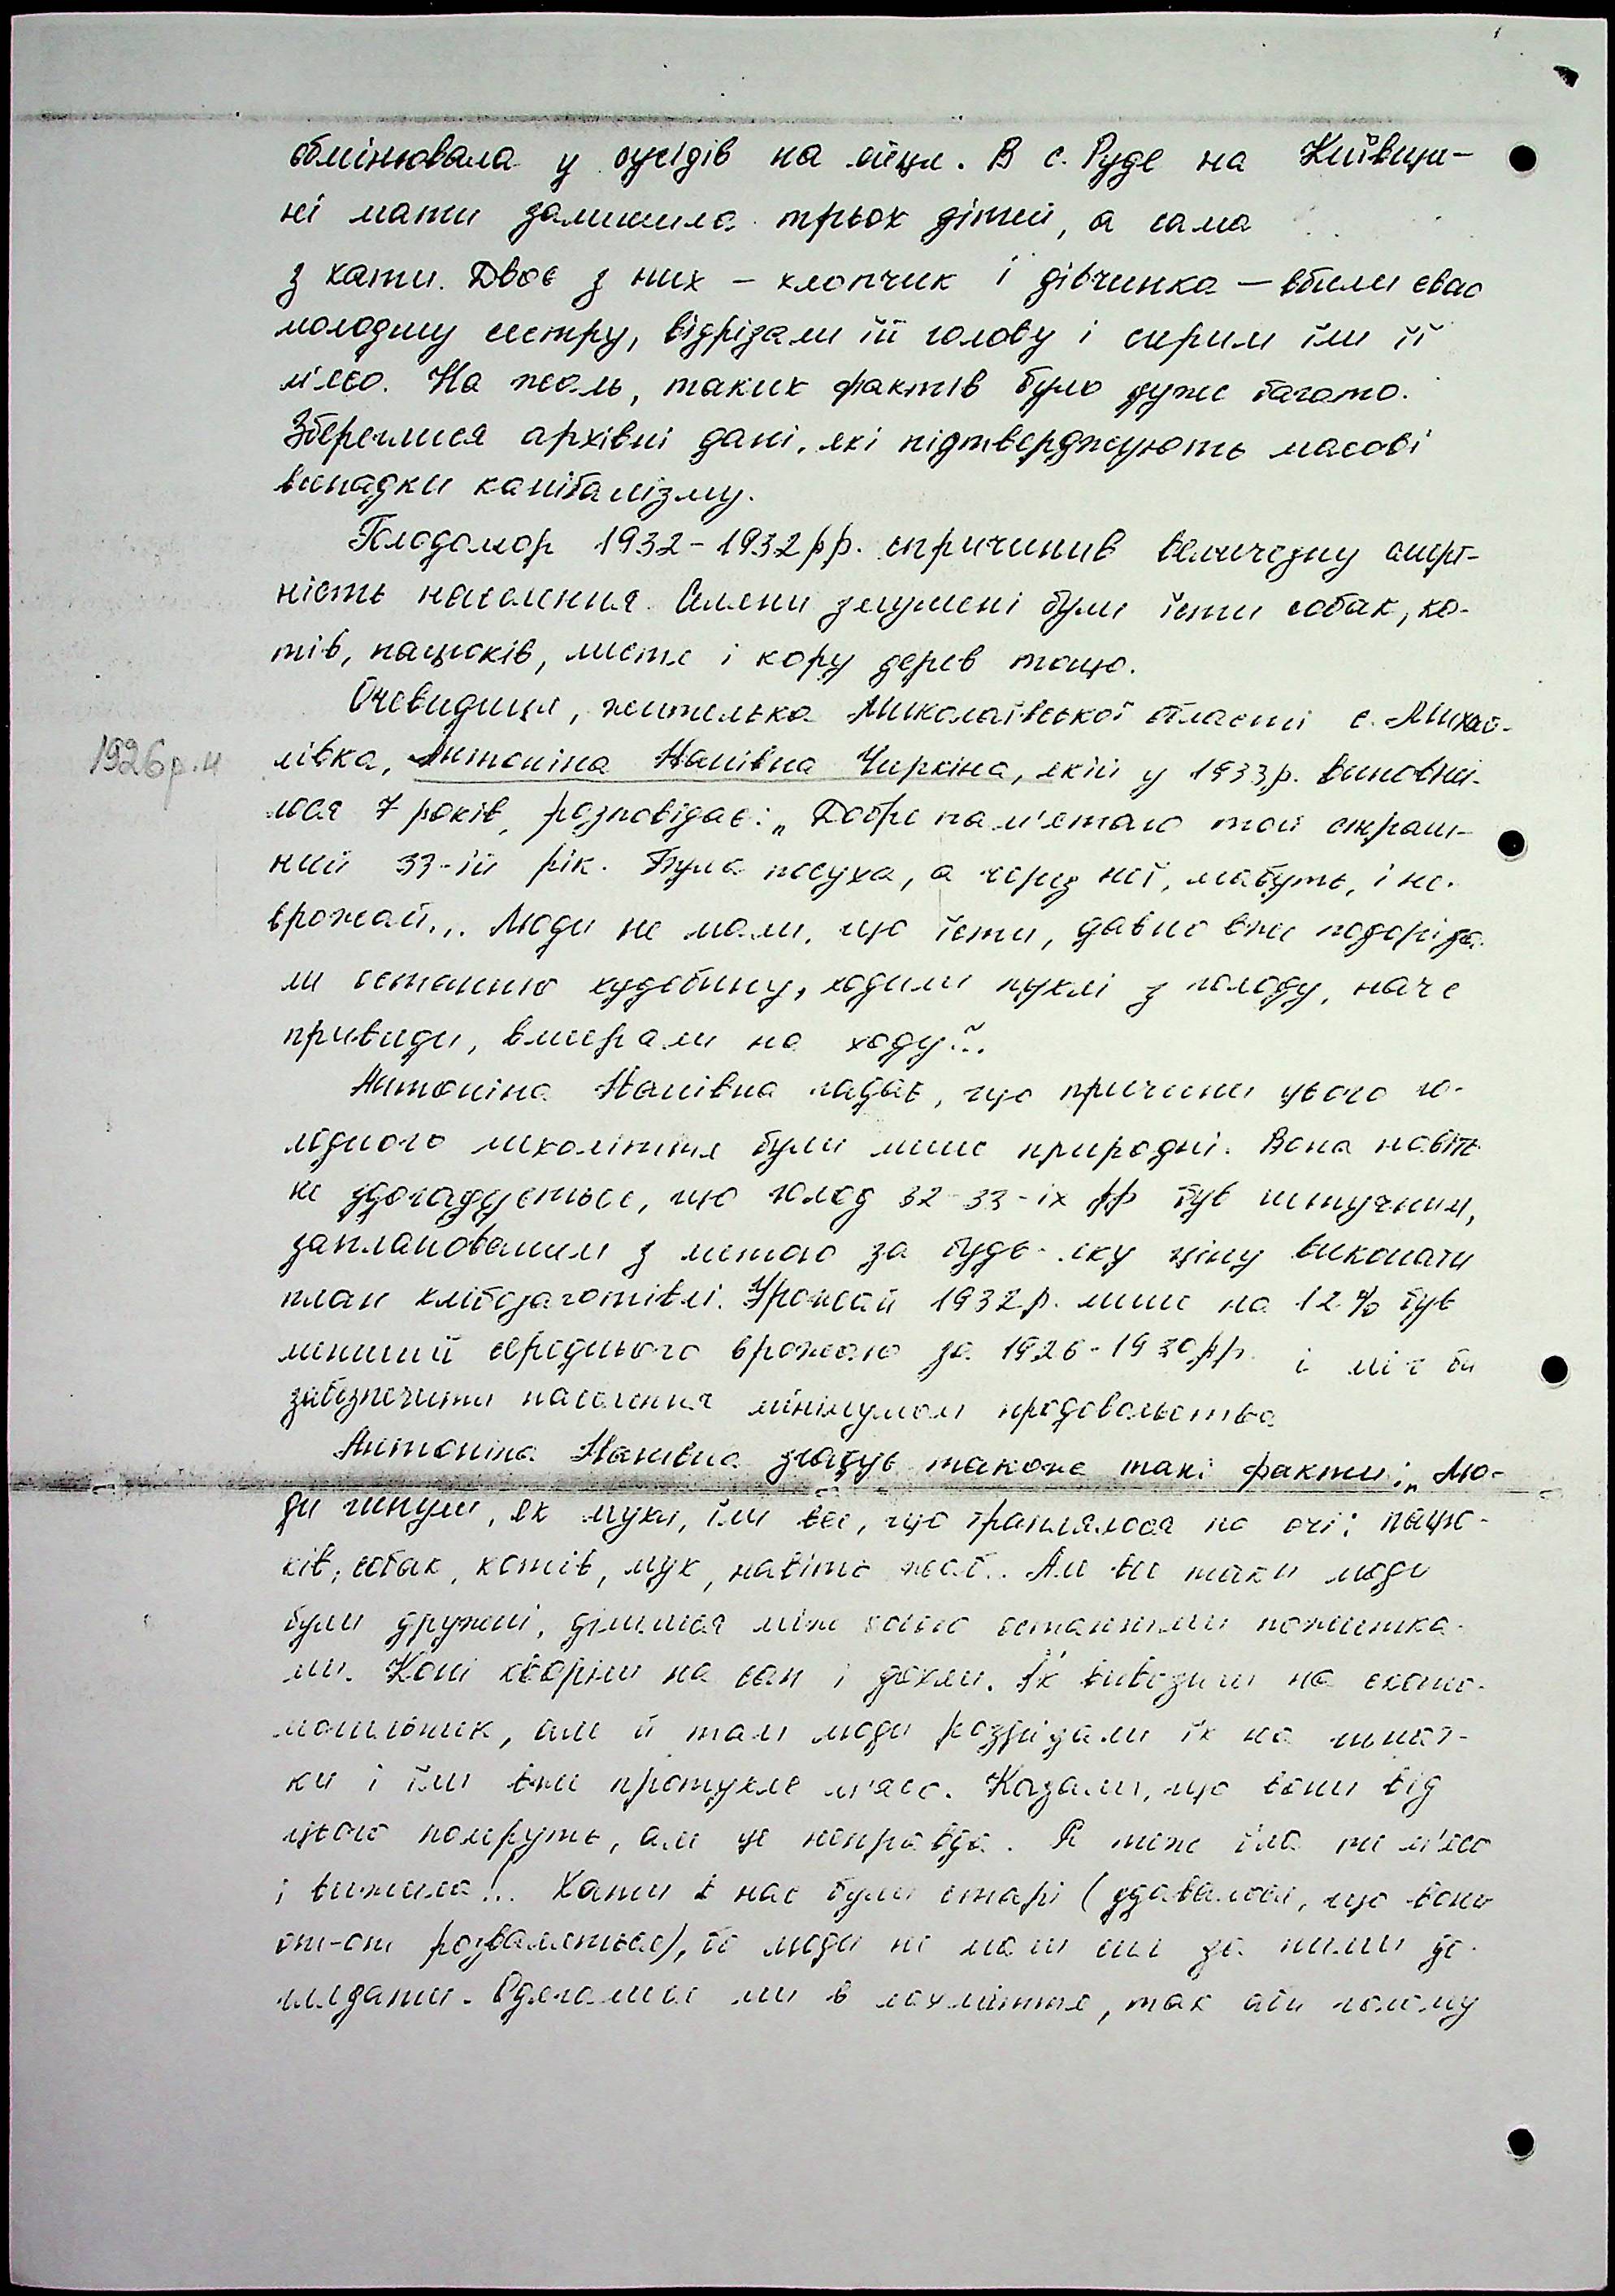 обмінювала у сусідів на яйця. В с. Руде на Київщи-
ні мати залишила трьох дітей, а сама
з хати. Двоє з них – хлопчик і дівчинка – вбили свою
молодшу сестру, відрізали їй голову і сирим їли її
м'ясо. На жаль, таких фактів було дуже багато.
Збереглися архівні дані, які підтверджують масові
випадки канібалізму.
Голодомор 1932-1932 рр. спричинив величезну смерт-
ність населення. Селяни змушені були їсти собак, ко-
тів, пацюків, листя і кору дерев тощо.
Очевидиця, жителька Миколаївської області с. Михай-
1926 р.н лівка, Антоніна Чиркіна, якій у 1933 р. виповни-
лося 7 років, розповідає: „Добре пам'ятаю той страш-
ний 33-ій рік. Була посуха, а через неї, мабуть, і не-
врожай... Люди не мали, що їсти, давно вже подоріза-
ли останню худобину, ходили пухлі з голоду, наче
привиди, вмирали на ходу"...
Антоніна гадає, що причини цього го-
лодного лихоліття були лише природні. Вона навіть
не здогадується, що голод 32-33-іх рр був штучним,
запланованим з метою за будь-яку ціну виконати
план хлібозаготівлі. Урожай 1932 р. лише на 12% був
менший середнього врожаю за 1926-1930 рр. і міг би
забезпечити населення мінімумом продовольства
Антоніна згадує також такі факти: „Лю-
ди гинули, як мухи, їли все, що траплялося на очі: пацю-
ків, собак, котів, мух, навіть жаб.. Але все таки люди
були дружні, ділилися між собою останніми пожитка-
ми. Коні хворіли на сап і дохли. Їх вивозили на ското-
могильник, але й там люди розрізали їх на шмат-
ки і їли вже протухле м'ясо. Казали, що вони від
цього помруть, але це неправда. Я теж їла те м'ясо
і вижила!.. Хати в нас були старі (здавалося, що вони
от-от розваляться), бо люди не мали сил за ними до-
глядати. Одягалися ми в лахміття, так аби голому